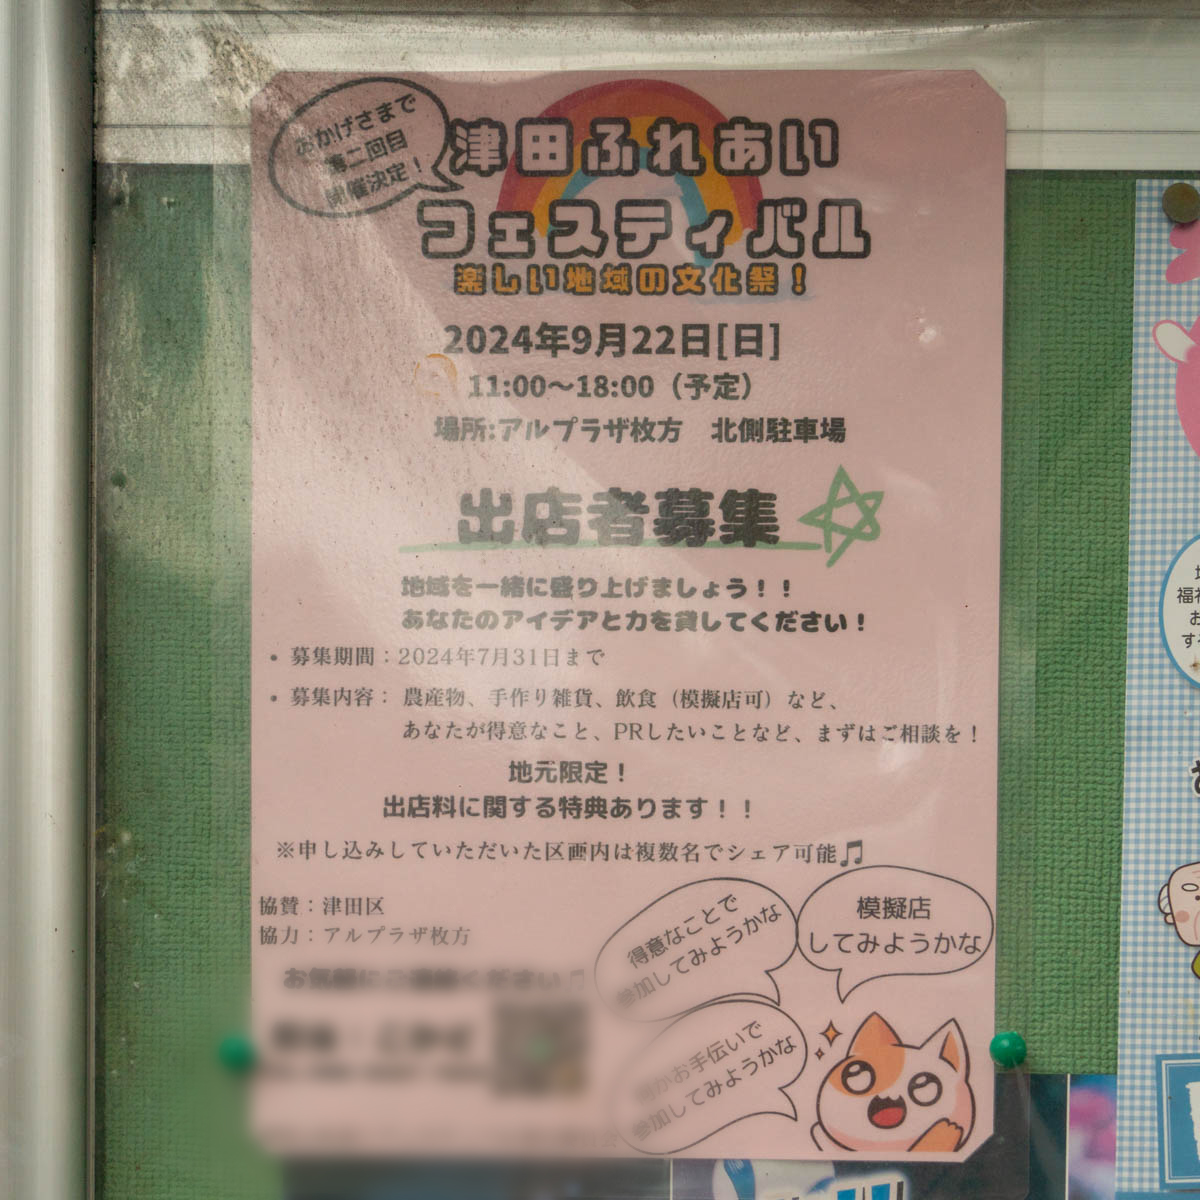 おかげさまで
第二回目
開催決定！
津田ふれあい
フェスティバル
楽しい地域の文化祭！
2024年9月22日[日]
11:00～18:00（予定）
場所:アルプラザ枚方　北側駐車場
出店者募集
地域を一緒に盛り上げましょう！！
あなたのアイデアと力を貸してください！
・募集期間：2024年7月31日まで
・募集内容： 農産物、手作り雑貨、飲食（模擬店可）など、
あなたが得意なこと、PRしたいことなど、まずはご相談を！
地元限定！
出店料に関する特典あります！！
※申し込みしていただいた区画内は複数名でシェア可能🎵
協賛：津田区
協力：アルプラザ枚方
得意なことで
参加してみようかな
模擬店
してみようかな
何かお手伝いで
参加してみようかな